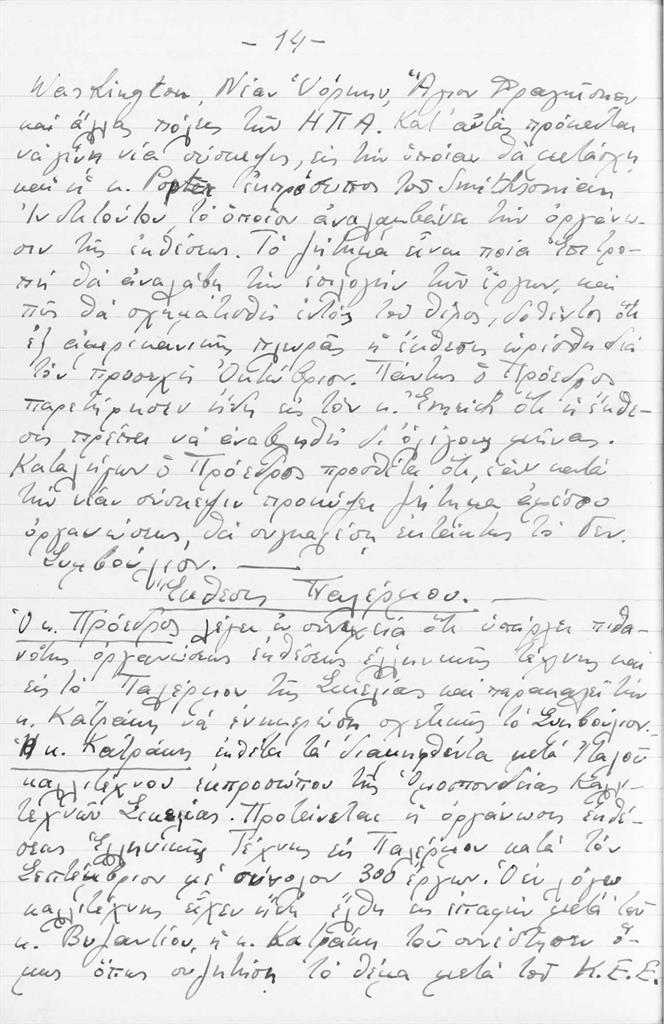 - 14 -
Washington, Νέαν Ὑόρκην, Ἅγιον Φραγκῖσκον
καὶ ἄλλας πόλεις τῶν ΗΠΑ. Κατ' αὐτὰς πρόκειται
νὰ γίνῃ νέα σύσκεψις, εἰς τὴν ὁποίαν θὰ μετάσχῃ
καὶ ἡ κ. Porter ἐκπρόσωπος τοῦ Smithsonian
Ἰνστιτούτου, τὸ ὁποῖον ἀναλαμβάνει τὴν ὀργάνω-
σιν τῆς ἐκθέσεως. Τὸ ζήτημα εἶναι ποία Ἐπιτρο-
πὴ θὰ ἀναλάβῃ τὴν ἐπιλογὴν τῶν ἔργων, καὶ
πῶς θὰ σχηματισθῇ ἐντὸς τοῦ θέρους, δοθέντος ὅτι
ἐξ ἀμερικανικῆς πλευρᾶς ἡ ἔκθεσις ὡρίσθη διὰ
τὸν προσεχῆ Ὀκτώβριον. Πάντως ὁ Πρόεδρος
παρετήρησεν ἤδη εἰς τὸν κ. Emerich ὅτι ἡ ἔκθε-
σις πρέπει νὰ ἀναβληθῇ δι' ὀλίγους μῆνας.
Καταλήγων ὁ Πρόεδρος προσθέτει ὅτι, ἐὰν κατὰ
τὴν νέαν σύσκεψιν προκύψει ζήτημα ἀμέσου
ὀργανώσεως, θὰ συγκαλέσῃ ἐκτάκτως τὸ Γεν.
Συμβούλιον. —
Ἔκθεσις Παλέρμου. —
Ὁ κ. Πρόεδρος λέγει ἐν συνεχείᾳ ὅτι ὑπάρχει πιθα-
νότης ὀργανώσεως ἐκθέσεως ἑλληνικῆς τέχνης καὶ
εἰς τὸ Παλέρμον τῆς Σικελίας καὶ παρακαλεῖ τὴν
κ. Κατράκη νὰ ἐνημερώσῃ σχετικῶς τὸ Συμβούλιον.
Ἡ κ. Κατράκη ἐκθέτει τὰ διαμειφθέντα μετὰ Ἰταλοῦ
καλλιτέχνου ἐκπροσώπου τῆς Ὁμοσπονδίας Καλλι-
τεχνῶν Σικελίας. Προτείνεται ἡ ὀργάνωσις ἐκθέ-
σεως Ἑλληνικῆς Τέχνης εἰς Παλέρμον κατὰ τὸν
Σεπτέμβριον μὲ σύνολον 300 ἔργων. Ὁ ἐν λόγῳ
καλλιτέχνης εἶχεν ἤδη ἔλθῃ εἰς ἐπαφὴν μετὰ τοῦ
κ. Βυζαντίου, ἡ κ. Κατράκη τοῦ συνέστησεν ὅ-
μως ὅπως συζητήσῃ τὸ θέμα μετὰ τοῦ Κ.Ε.Ε.